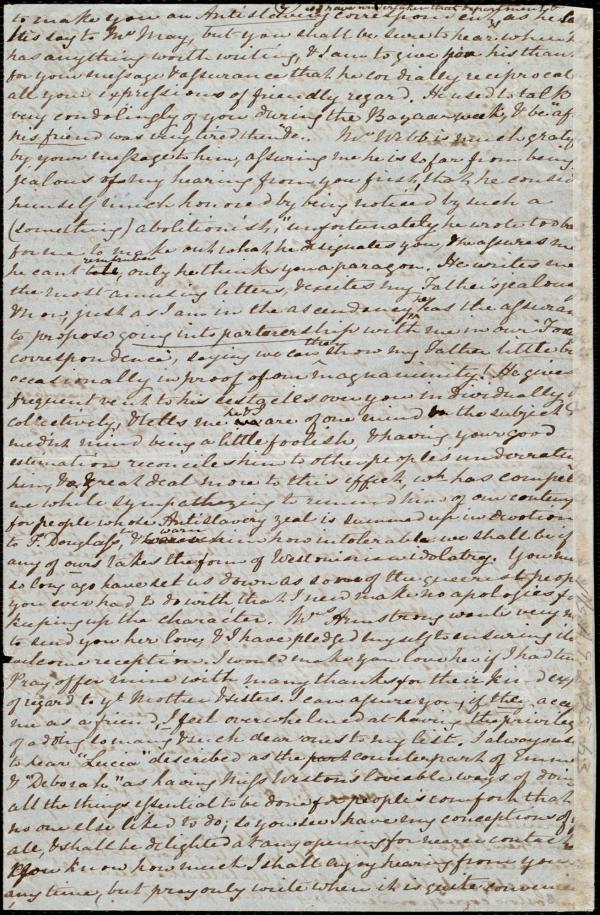 I have undertaken that department
to make you an Antislavery correspondent, as he
this say to Mr May, but you shall be sure to hear when
has anything worth writing, & I am to give you his than
for your message & assurance that he cordially reciprocat
all your expressions of friendly regard. He used to talk
very condolingly of you during the Bazaar week, & be "af
his friend was very tired tho' de". Mr Webb is much grat
by your message to him, assuring me he is so far from being
jealous of my hearing from you first, that he consi
himself much honored by being noticed by such a
(something) abolitionish, "unfortunately he wrote too
for me to make out what he designates you, & he assures me
he can't remember, only he thinks you a paragon. He writes me
the most amusing letters, & excites my Father's jealous
& now, just as I am in the ascendency he has the assuran
to propose going into partnership with me in our
correspondence, saying we can then show my Father little
occasionally in proof of our magnanimity! He gives
frequent vent to his ecstacies over you individually
collectively, & tells me he & I are of one mind on the subject &
needn't mind being a little foolish & having your good
estimation reconciles him to other people's underratin
him, & a great deal more to this effect, wh. has compel
me while sympathizing to remind him of our contem
for people whose Antislavery zeal is summed up in devotion
to F. Douglass, & warn him how intolerable we shall be if
any of ours takes the form of Westonian idolatry. You mu
so long ago have set us down as some of the queerest peop
you ever had to do with that I need make no apologies fo
keeping up the character. Mrs Armstrong wants very m
to send you her love, & I have pledged myself to ensuring it
welcome reception. I would make you love her if I had tim
Pray offer mine with many thanks for their kind exp
of regard to yr Mother & sisters. I can assure you, if they acce
me as a friend, I feel overwhelmed at having the privileg
of adding so many & such dear ones to my list. I always us
to hear "Lucia" described as the counterpart of Emma
& "Deborah" as having Miss Weston's loveable ways of doin
all the things essential to be done for people's comfort that
no one else liked to do; so you see I have my conceptions of
all, & shall be delighted at any opening for nearer contact
You know how much I shall enjoy hearing from you
any time, but pray only write when it is quite convenien